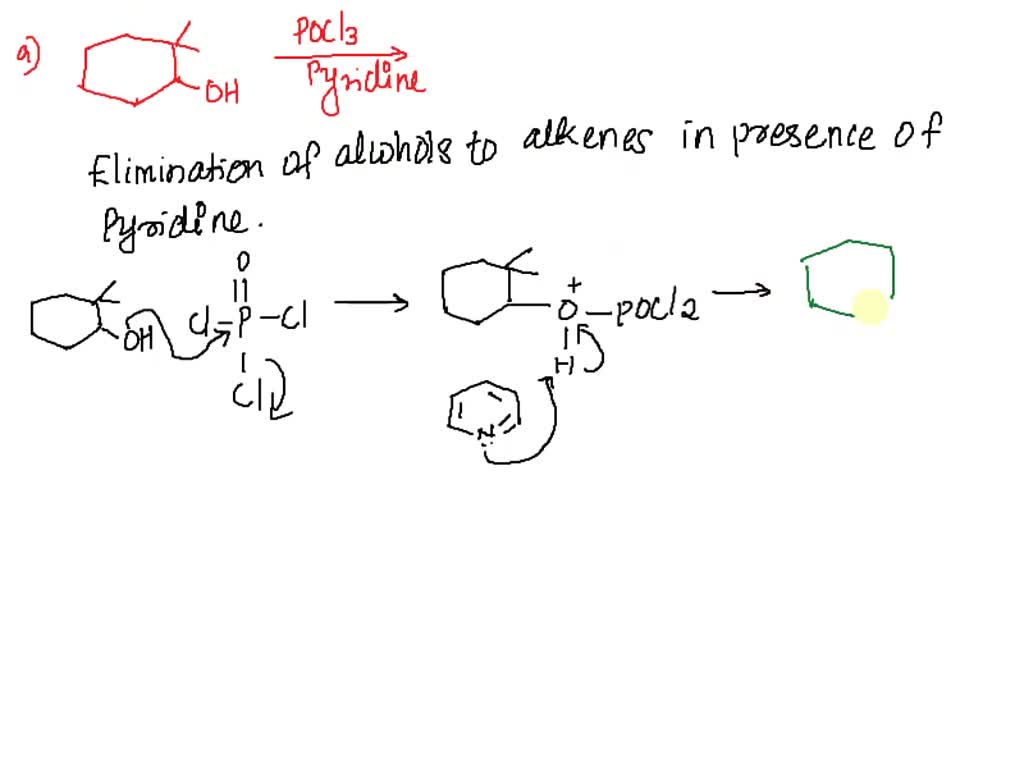 a)
OH
POCl3
Pyridine
Elimination of alcohols to alkenes in presence of
Pyridine.
O
OH
Cl-P-Cl
Cl
+
O-POCl2
H
N